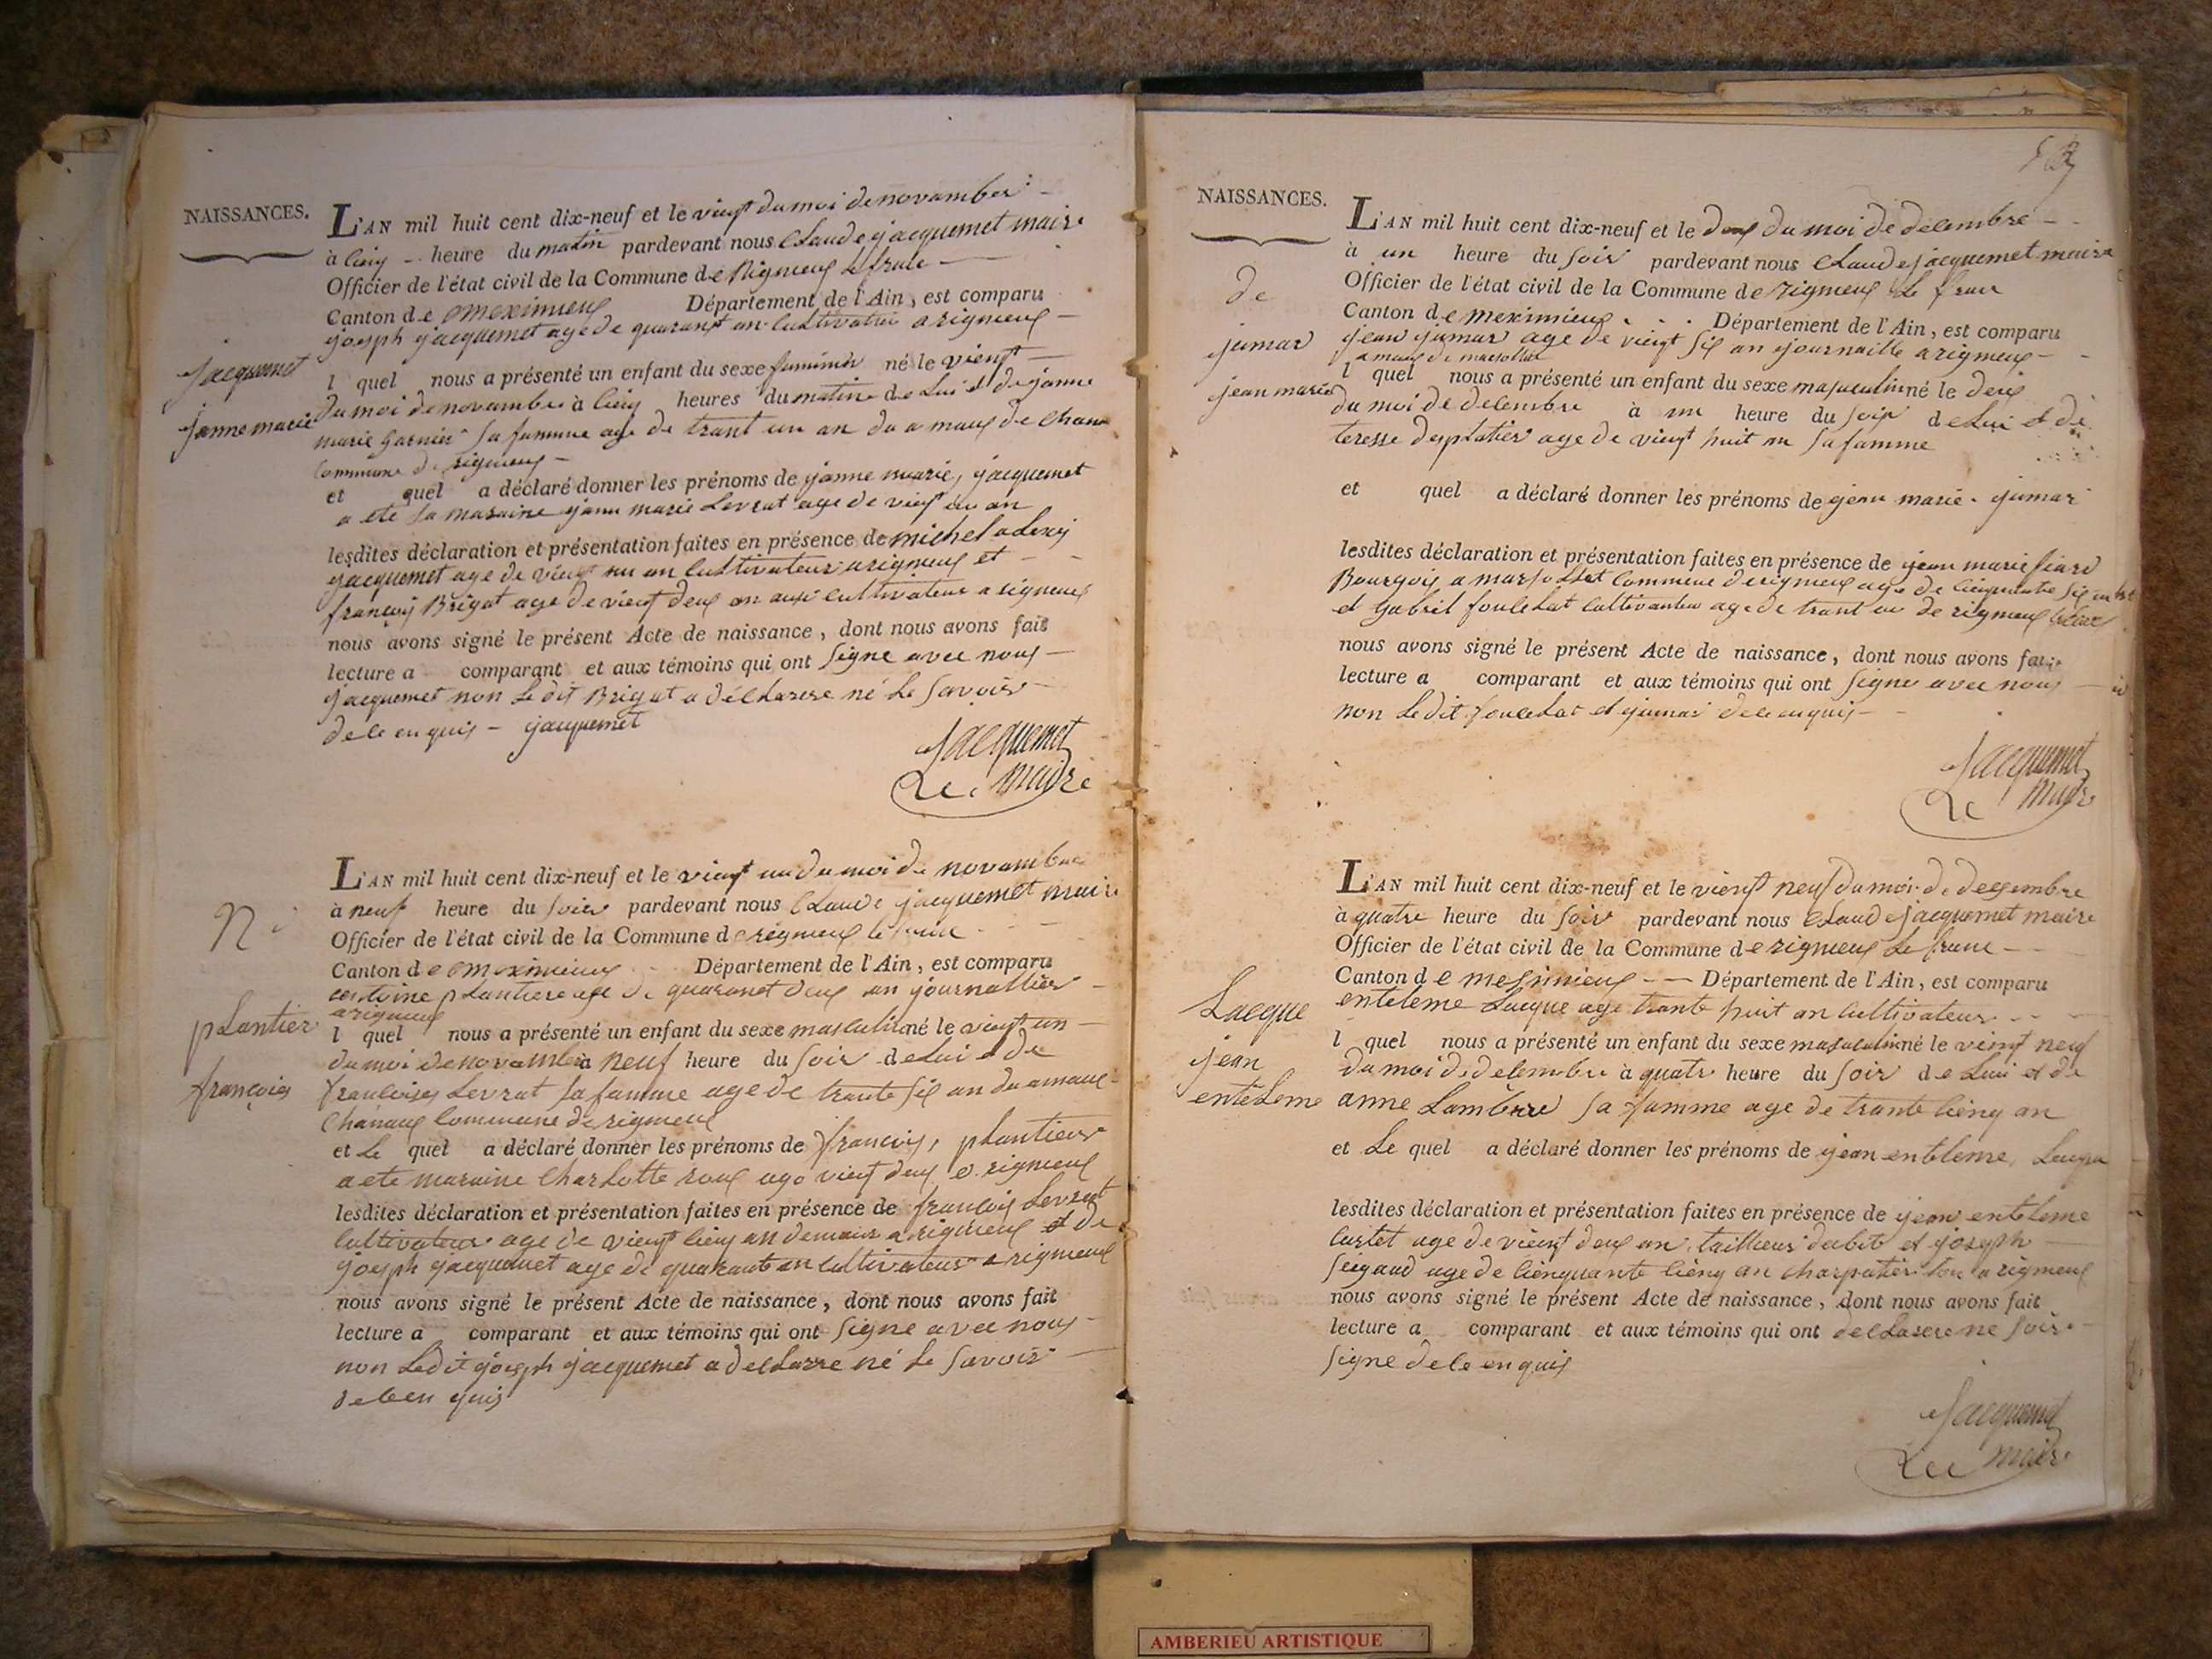 NAISSANCES.
L'AN mil huit cent dix-neuf et le vient du moi de novamber
à cienq heure du matin pardevant nous Claude jacquemet maire
Officier de l'état civil de la Commune de Rigneux le franc
Canton de meximieux Département de l'Ain, est comparu
joseph jacquemet age de quarant an cultivateur a rigneux
l quel nous a présenté un enfant du sexe faminin né le vienpt
du moi de novambre à cienq heures du matin de Lui et de janne
marie Garnier sa famme age de trant un an du a maux de Chan
Commune de rigneux
et quel a déclaré donner les prénoms de janne marie, jacquemet
a ete sa maraine janne marie Levrat age de vient un an
lesdites déclaration et présentation faites en présence de michel
jacquemet age de vient un an Cultivateur a rigneux et
françois Brigat age de vient deux an aussi cultivateur a rigneux
nous avons signé le présent Acte de naissance, dont nous avons fait
lecture a comparant et aux témoins qui ont Signe avec nous
jacquemet non Le dit Brigat a déclarere né Le Savoir
de ce en quis - jacquemet
Jacquemet
Le Maire
Jacquemet
janne marie
L'AN mil huit cent dix-neuf et le vient un du moi de novambre
à neuf heure du Soir pardevant nous Claude jacquemet maire
Officier de l'état civil de la Commune de rigneux le franc
Canton de meximieux Département de l'Ain, est comparu
plantiere age de quaranet deux an journallier
a rigneux
l quel nous a présenté un enfant du sexe masculin né le vient un
du moi de novambre à neuf heure du Soir de Lui et de
francoises Levrat sa famme age de trante six an du amaux
Chanaux Commune de rigneux
et Le quel a déclaré donner les prénoms de francois, plantier
a ete maraine Charlotte roux age vient deux a rigneux
lesdites déclaration et présentation faites en présence de francois Levrat
Cultivateur age de vient cienq an demeure a rigneux et de
joseph jacquemet age de quarante an cultivateur a rigneux
nous avons signé le présent Acte de naissance, dont nous avons fait
lecture a comparant et aux témoins qui ont Signe avec nous
non Le dit joseph jacquemet a declarre né Le Savoir
de ce en quis
N
plantier
françois
NAISSANCES.
L'AN mil huit cent dix-neuf et le deux du moi de decembre
à un heure du Soir pardevant nous Claude jacquemet maire
Officier de l'état civil de la Commune de rigneux Le franc
Canton de meximieux Département de l'Ain, est comparu
jean jumar age de vient six an journaille a rigneux
a maux de marsollat
l quel nous a présenté un enfant du sexe masuculin né le deux
du moi de decembre à un heure du soir de Lui et de
teresse deplatier age de vient huit an sa famme
et quel a déclaré donner les prénoms de jean marie jumar
lesdites déclaration et présentation faites en présence de jean marie
Bourgois a marsollat Commune de rigneux age de cienquante six an
et Gabriel foulchat cultivateur age de trant an de rigneux
nous avons signé le présent Acte de naissance, dont nous avons fait
lecture a comparant et aux témoins qui ont Signe avec nous
non Le dit foulchat et jumar de ce en quis
Jacquemet
Le Maire
de
jumar
jean marie
L'AN mil huit cent dix-neuf et le vient neuf du moi de decembre
à quatre heure du Soir pardevant nous Claude jacquemet maire
Officier de l'état civil de la Commune de rigneux Le franc
Canton de mesimieux Département de l'Ain, est comparu
enteleme Lacque age trante huit an cultivateur
l quel nous a présenté un enfant du sexe masuculin né le vient neuf
du moi de decembre à quatre heure du Soir de Lui et de
anne Sa famme age de trante cienq an
et Le quel a déclaré donner les prénoms de jean enteleme Lacque
lesdites déclaration et présentation faites en présence de jean enteleme
age de vient deux an tailleur dabit et joseph
Seigaud age de cienquante cienq an charpatier a rigneux
nous avons signé le présent Acte de naissance, dont nous avons fait
lecture a comparant et aux témoins qui ont declarere ne
signe de ce en quis
Jacquemet
Le maire
Lacque
jean
enteleme
AMBERIEU ARTISTIQUE